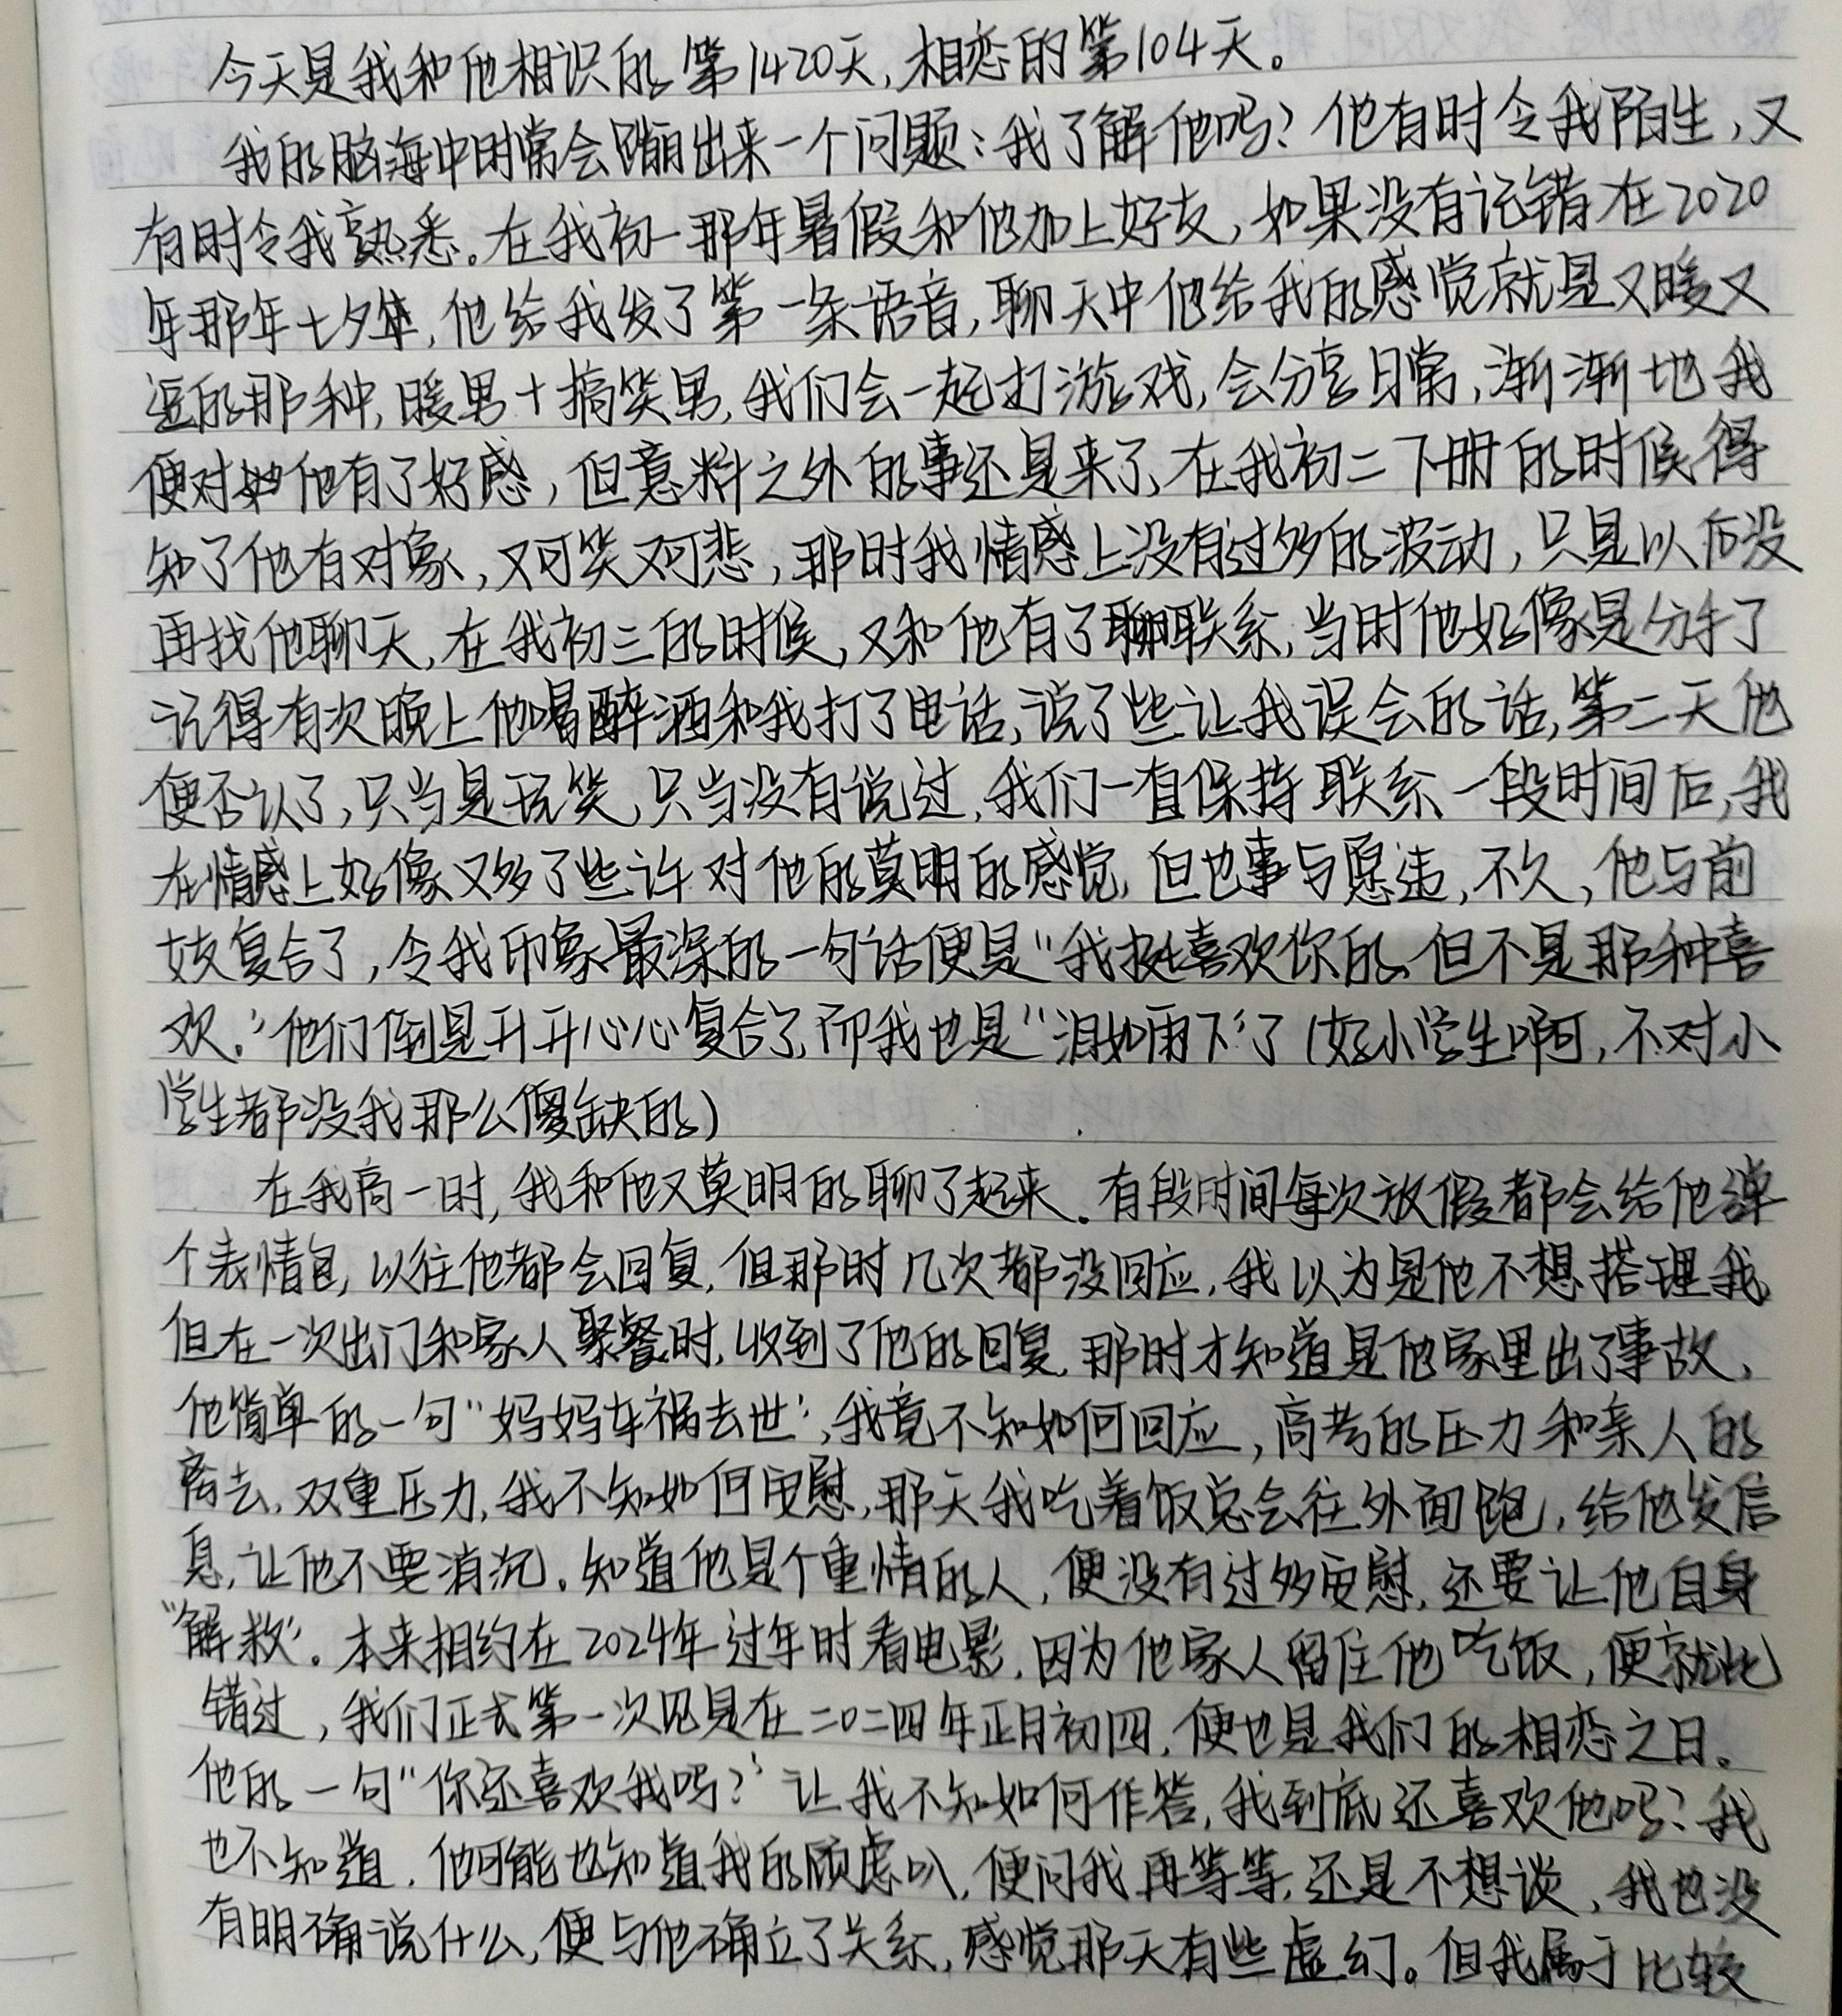 今天是我和他相识的第1420天,相恋的第104天。
我的脑海中时常会蹦出来一个问题:我了解他吗?他有时令我陌生,又
有时令我熟悉。在我初一那年暑假和他加上好友,如果没有记错在2020
年那年七夕,他给我发了第一条语音,聊天中他给我的感觉就是又暖又
逗的那种,暖男+搞笑男,我们会一起打游戏,会分享日常,渐渐地我
便对他有了好感,但意料之外的事还是来了,在我初二下册的时候得
知了他有对象,又可笑又可悲,那时我情感上没有过多的波动,只是以后没
再找他聊天,在我初三的时候,又和他有了联系,当时他好像是分手了
记得有次晚上他喝醉酒和我打了电话,说了些让我误会的话,第二天他
便否认了,只当是玩笑,只当没有说过,我们一直保持联系一段时间后,我
在情感上好像又多了些许对他的莫明的感觉,但也事与愿违,不久,他与前
女友复合了,令我印象最深的一句话便是“我挺喜欢你的,但不是那种喜
欢。”他们倒是开开心心复合了,而我也是“泪如雨下”了(好小学生啊,不对小
学生都没我那么傻缺的)
在我高一时,我和他又莫明的聊了起来。有段时间每次放假都会给他弹
个表情包,以往他都会回复,但那时几次都没回应,我以为是他不想搭理我,
但在一次出门和家人聚餐时,收到了他的回复,那时才知道是他家里出了事故,
他简单的一句“妈妈车祸去世”,我竟不知如何回应,高考的压力和亲人的
离去,双重压力,我不知如何安慰,那天我吃着饭总会往外面跑,给他发信
息,让他不要消沉。知道他是个重情的人,便没有过多安慰,还要让他自身
“解救”。本来相约在2024年过年时看电影,因为他家人留住他吃饭,便就此
错过,我们正式第一次见是在二〇二四年正月初四,便也是我们的相恋之日。
他的一句“你还喜欢我吗?”让我不知如何作答,我到底还喜欢他吗?我
也不知道,他可能也知道我的顾虑叭,便问我再等等,还是不想谈,我也没
有明确说什么,便与他确立了关系,感觉那天有些虚幻。但我属于比较